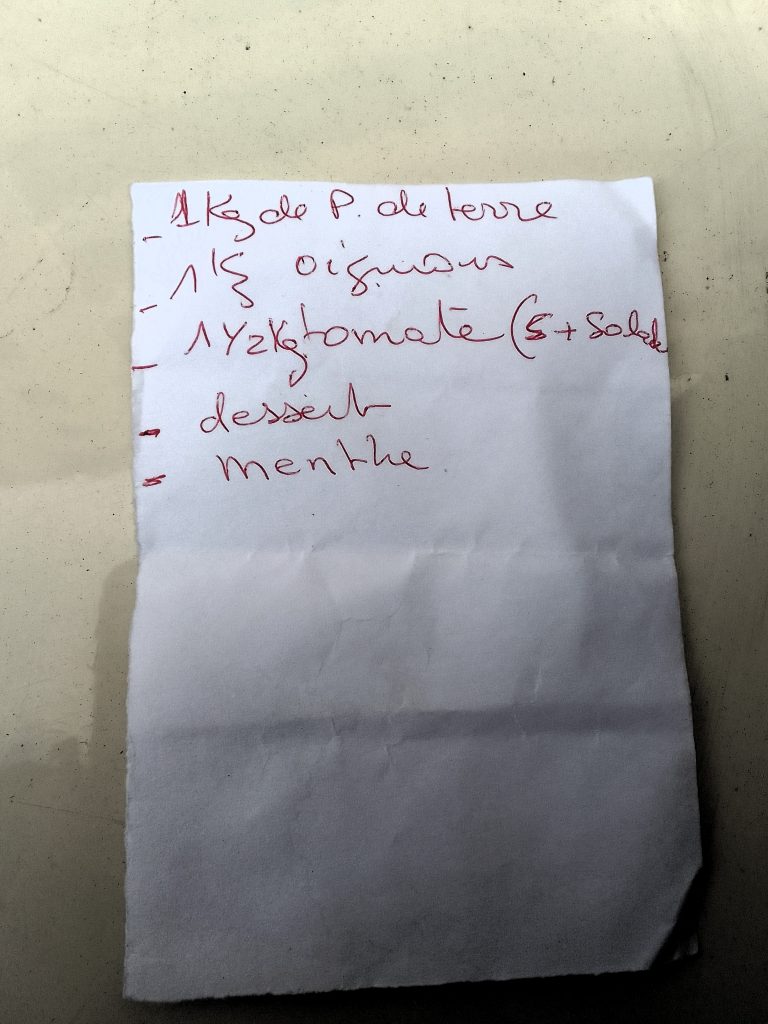 - 1Kg de P. de terre
- 1Kg oignons
- 1 1/2 Kg tomate (S + Salade
- dessert
- menthe